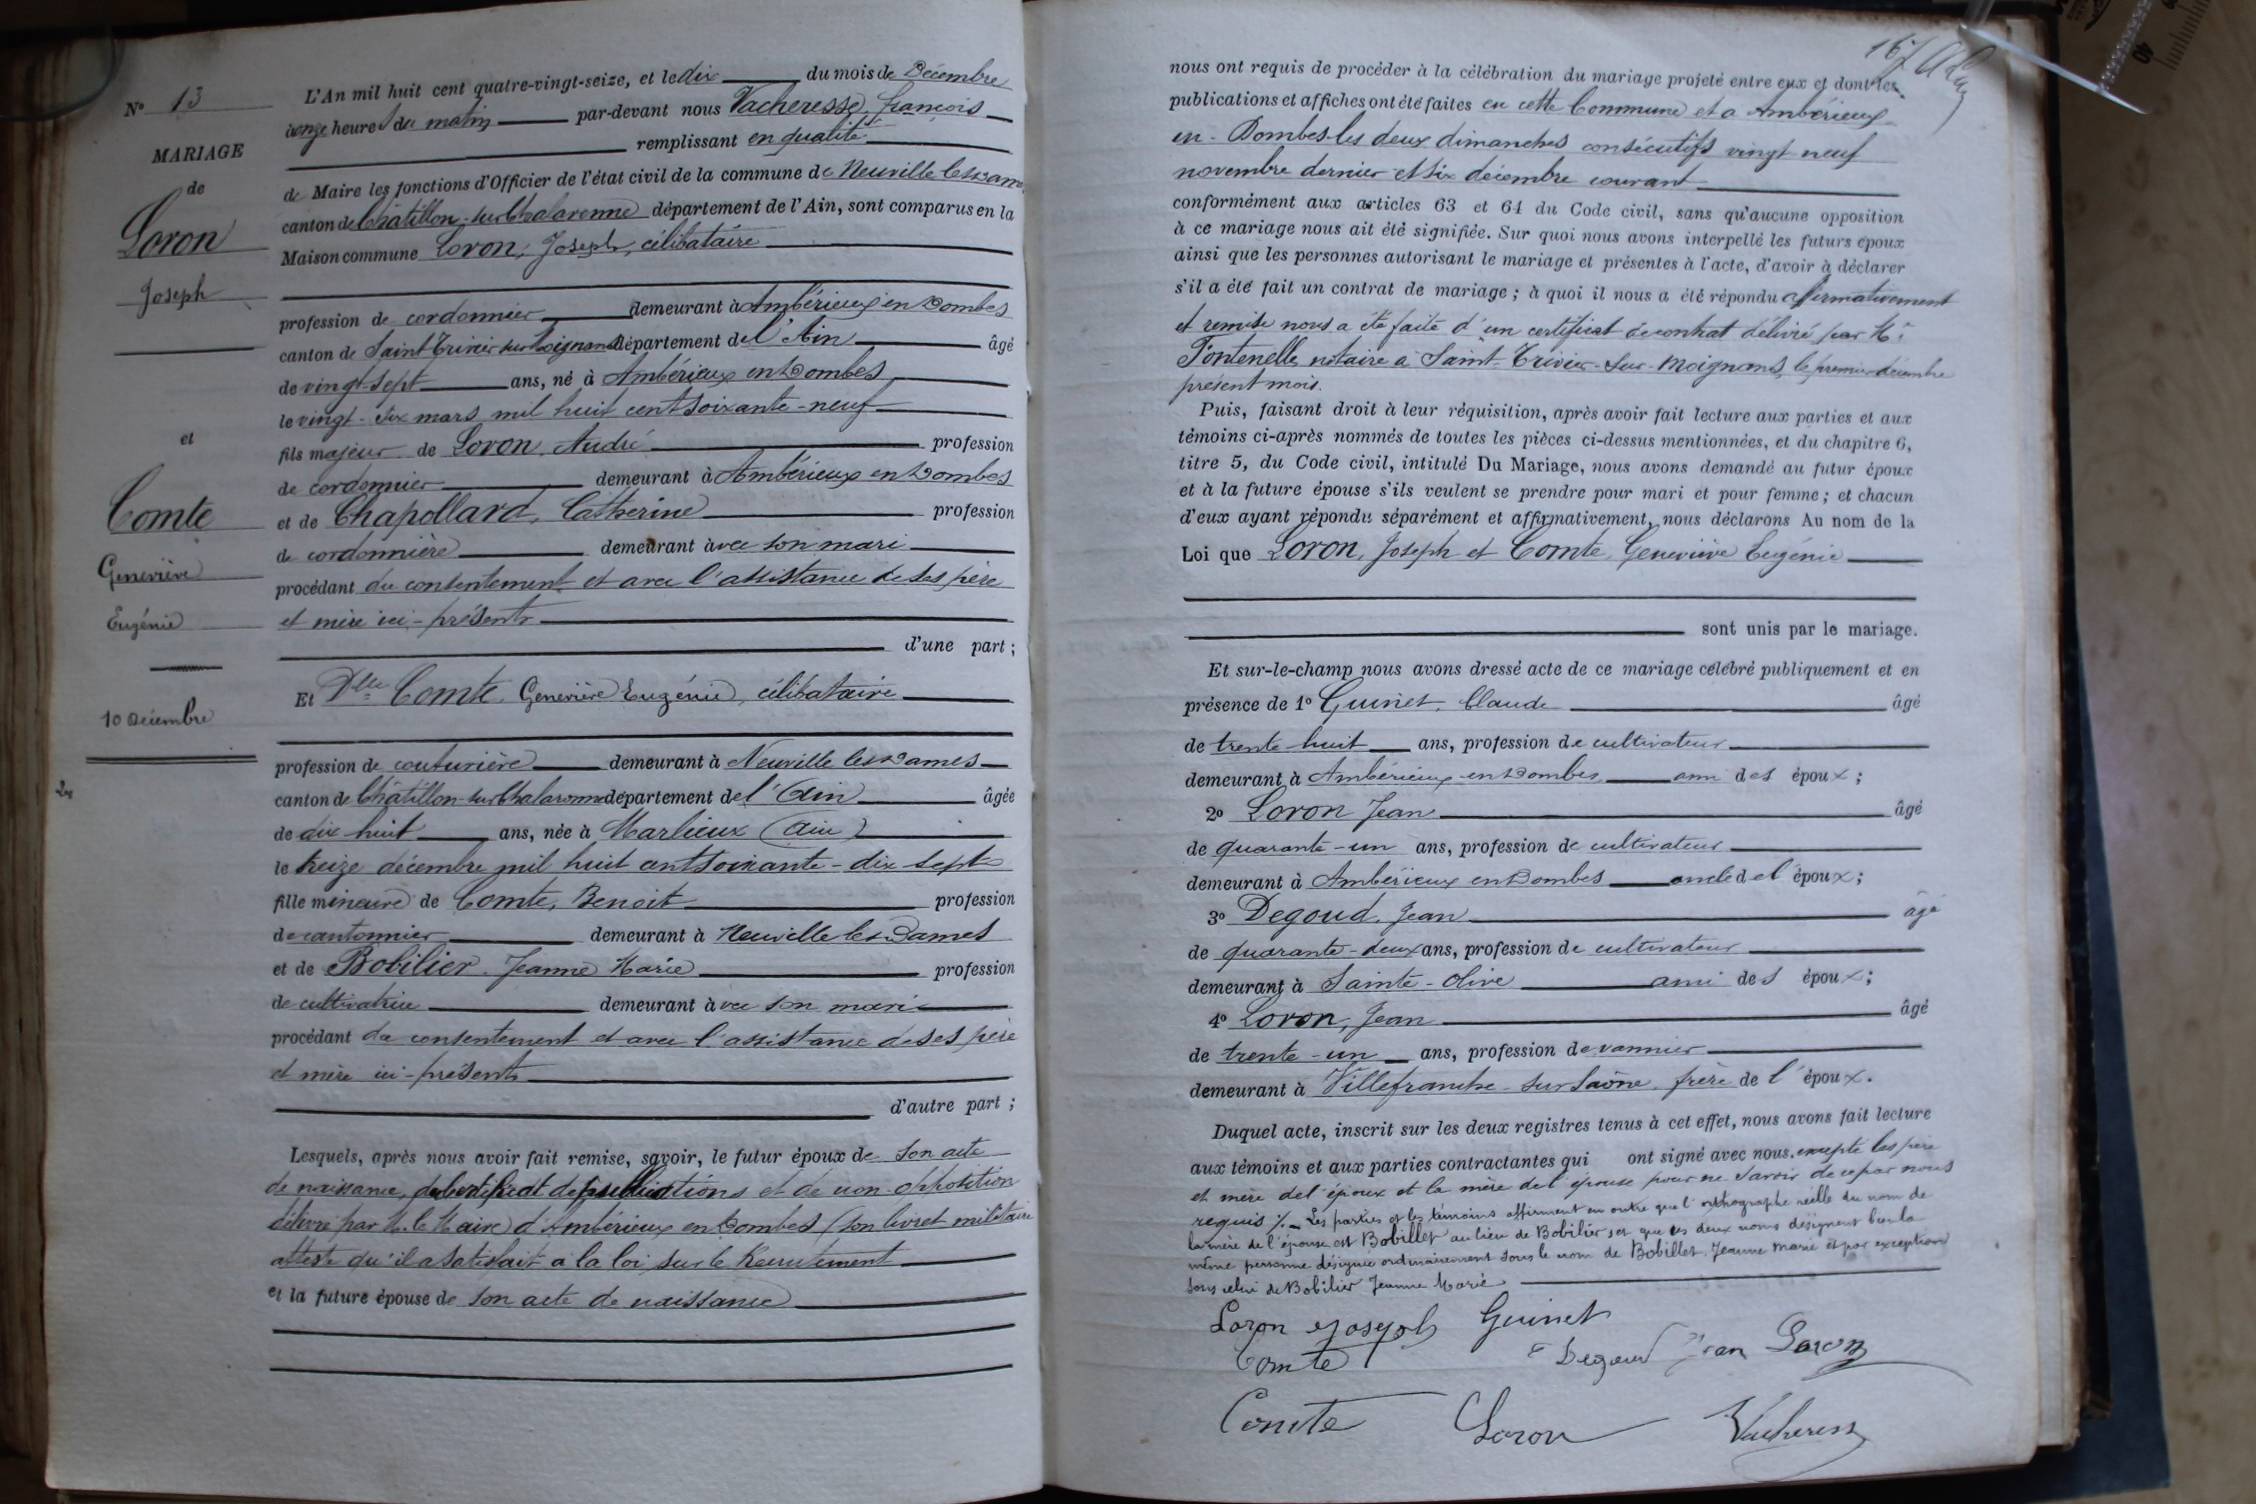 N° 13
MARIAGE
de
Loron
Joseph
et
Comte
Geneviève
Eugénie
10 Décembre
L'An mil huit cent quatre-vingt-seize, et le dix du mois de Décembre
à onze heures du matin par-devant nous Vacheresse, François
remplissant en qualité
de Maire les fonctions d'Officier de l'état civil de la commune de Neuville les Dames
canton de Châtillon-sur Chalaronne département de l'Ain, sont comparus en la
Maison commune Loron, Joseph, célibataire
profession de cordonnier demeurant à Ambérieux en Dombes
canton de Saint Trivier sur Moignans département de l'Ain âgé
de vingt-sept ans, né à Ambérieux en Dombes
le vingt-six mars mil huit cent soixante-neuf
fils majeur de Loron, André profession
de cordonnier demeurant à Ambérieux en Dombes
et de Chapollard, Catherine profession
de cordonnière demeurant avec son mari
procédant du consentement et avec l'assistance de ses père
et mère ici-présents
d'une part ;
Et Dlle Comte, Geneviève Eugénie, célibataire
profession de couturière demeurant à Neuville les Dames
canton de Châtillon-sur Chalaronne département de l'Ain âgée
de dix huit ans, née à Marlieux (Ain)
le treize décembre mil huit cent soixante-dix sept
fille mineure de Comte, Benoit profession
de cantonnier demeurant à Neuville les Dames
et de Bobilier Jeanne Marie profession
de cultivatrice demeurant avec son mari
procédant du consentement et avec l'assistance de ses père
et mère ici-présents
d'autre part ;
Lesquels, après nous avoir fait remise, savoir, le futur époux de son acte
de naissance, du certificat de publications et de non-opposition
délivré par M. le Maire d'Ambérieux en Dombes (son livret militaire
atteste qu'il a satisfait à la loi sur le Recrutement
et la future épouse de son acte de naissance
167
nous ont requis de procéder à la célébration du mariage projeté entre eux et dont les
publications et affiches ont été faites en cette Commune et à Ambérieux
en-Dombes les deux dimanches consécutifs vingt neuf
novembre dernier et six décembre courant
conformément aux articles 63 et 64 du Code civil, sans qu'aucune opposition
à ce mariage nous ait été signifiée. Sur quoi nous avons interpellé les futurs époux
ainsi que les personnes autorisant le mariage et présentes à l'acte, d'avoir à déclarer
s'il a été fait un contrat de mariage ; à quoi il nous a été répondu affirmativement
et remise nous a été faite d'un certificat de contrat délivré par Me
Fontenelle, notaire à Saint-Trivier-sur-Moignans, le premier décembre
présent mois.
Puis, faisant droit à leur réquisition, après avoir fait lecture aux parties et aux
témoins ci-après nommés de toutes les pièces ci-dessus mentionnées, et du chapitre 6,
titre 5, du Code civil, intitulé Du Mariage, nous avons demandé au futur époux
et à la future épouse s'ils veulent se prendre pour mari et pour femme ; et chacun
d'eux ayant répondu séparément et affirmativement, nous déclarons Au nom de la
Loi que Loron, Joseph et Comte, Geneviève Eugénie
sont unis par le mariage.
Et sur-le-champ nous avons dressé acte de ce mariage célébré publiquement et en
présence de 1° Guinet, Claude âgé
de trente-huit ans, profession de cultivateur
demeurant à Ambérieux-en Dombes ami des époux ;
2° Loron Jean âgé
de quarante-un ans, profession de cultivateur
demeurant à Ambérieux en Dombes oncle de l'époux ;
3° Degoud, Jean âgé
de quarante-deux ans, profession de cultivateur
demeurant à Sainte-Olive ami des époux ;
4° Loron, Jean âgé
de trente-un ans, profession de vannier
demeurant à Villefranche-sur Saône, frère de l'époux.
Duquel acte, inscrit sur les deux registres tenus à cet effet, nous avons fait lecture
aux témoins et aux parties contractantes qui ont signé avec nous, excepté les père
et mère de l'époux et la mère de l'épouse pour ne savoir de ce par nous
requis %. Les parties et les témoins affirment en outre que l'orthographe réelle du nom de
la mère de l'épouse est Bobillet au lieu de Bobilier et que ces deux noms désignent bien la
même personne désignée ordinairement sous le nom de Bobillet Jeanne Marie et par exception
sous celui de Bobilier Jeanne Marie
Loron Joseph Guinet
Comte Degoud Jean Loron
Comte Loron Vacheresse